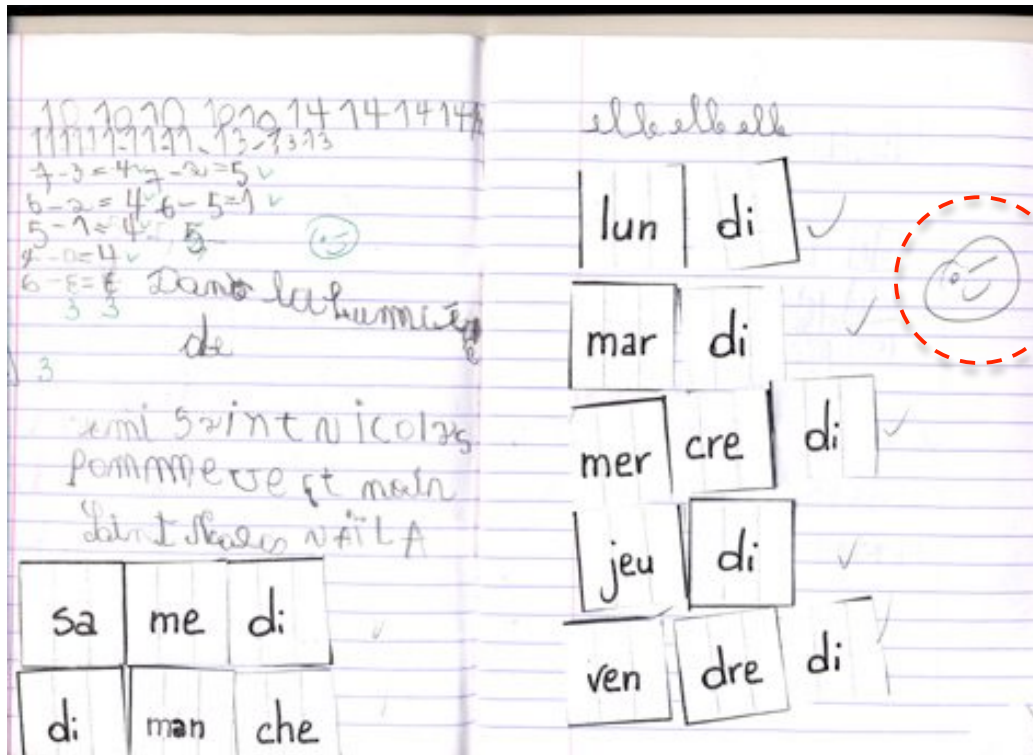 10 10 10 10 10 14 14 14 14
11 11 11-11-11- 13-13-13
7-3=4 7-2=5
6-2=4 6-5=1
5-1=4 5
-0=4
6-
3 3
Dans la
de
3
Saint Nicolas
pomme
Saint NAÏLA
sa me di
di man che
elle elle elle
lun di
mar di
mer cre di
jeu di
ven dre di